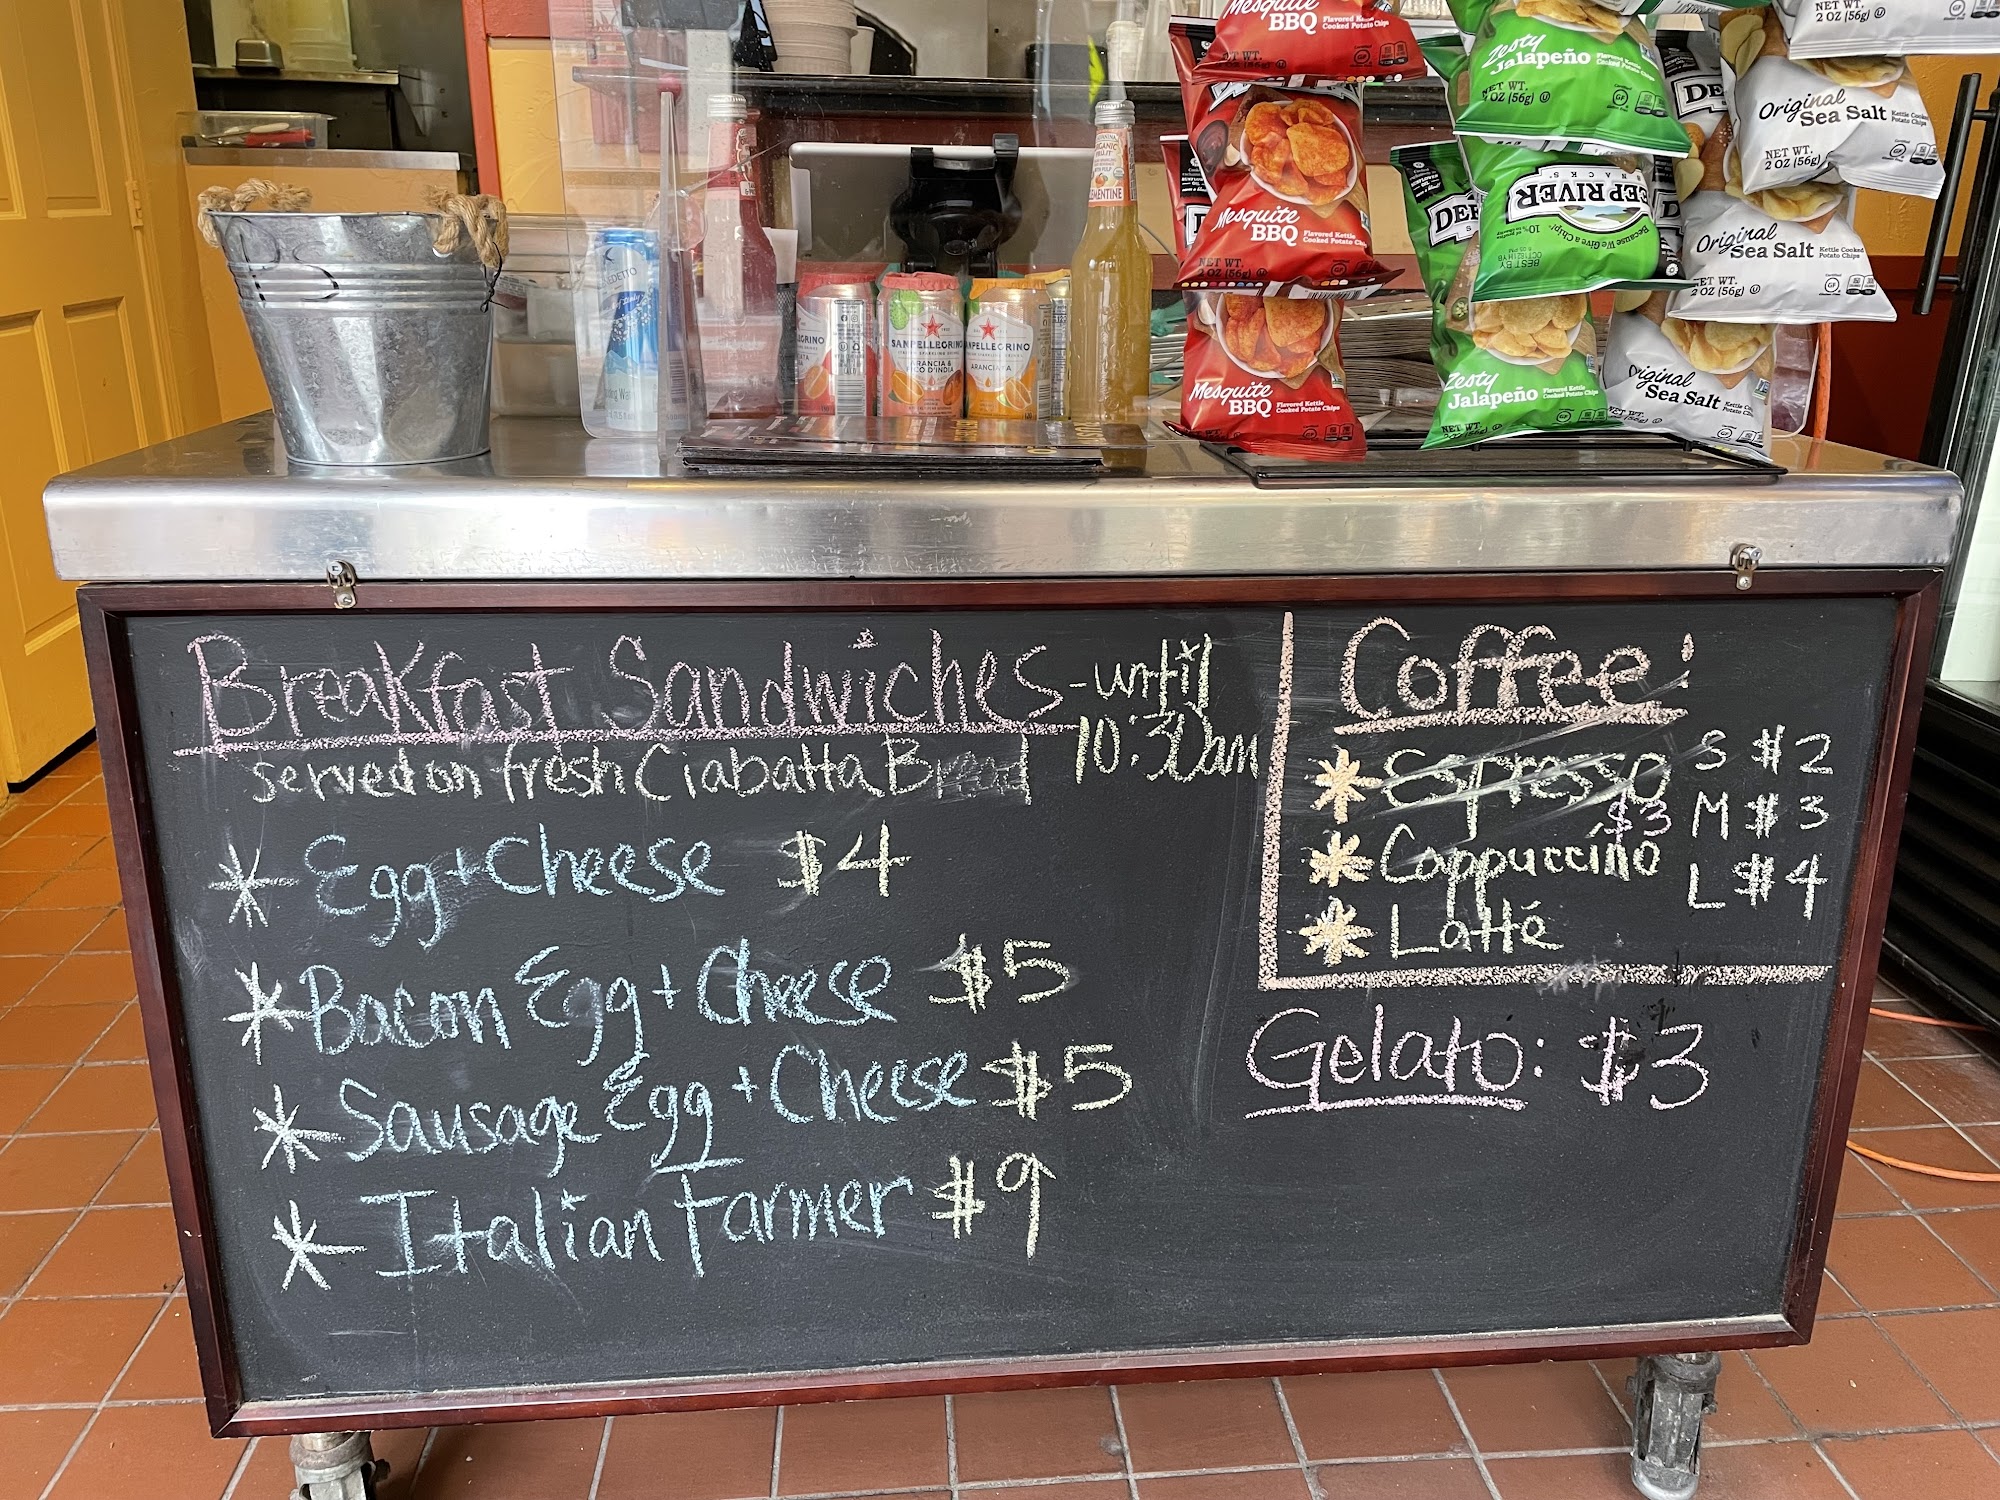 Mesquite
BBQ
Flavored Kettle
Cooked Potato Chips
NET WT.
2 OZ (56g)
Mesquite
BBQ
Flavored Kettle
Cooked Potato Chips
NET WT.
2 OZ (56g)
Mesquite
BBQ
Flavored Kettle
Cooked Potato Chips
NET WT.
Zesty
Jalapeño
Flavored Kettle
Cooked Potato Chips
NET WT.
2 OZ (56g)
GF
DEEP RIVER
SNACKS
Because We Give a Chip!
10%
BEST BY
Zesty
Jalapeño
Flavored Kettle
Cooked Potato Chips
NET WT.
GF
NET WT.
2 OZ (56g)
Original
Sea Salt
Kettle Cooked
Potato Chips
NET WT.
2 OZ (56g)
GF
Original
Sea Salt
Kettle Cooked
Potato Chips
NET WT.
2 OZ (56g)
GF
Original
Sea Salt
Kettle Cooked
Potato Chips
SANPELLEGRINO
ARANCIA &
FICO D'INDIA
SANPELLEGRINO
ARANCIATA
ORGANIC
CLEMENTINE
Breakfast Sandwiches - until
10:30am
served on fresh Ciabatta Bread
* Egg + Cheese $4
* Bacon Egg + Cheese $5
* Sausage Egg + Cheese $5
* Italian Farmer $9
Coffee:
* Espresso S $2
$3 M $3
* Cappuccino
L $4
* Latté
Gelato: $3